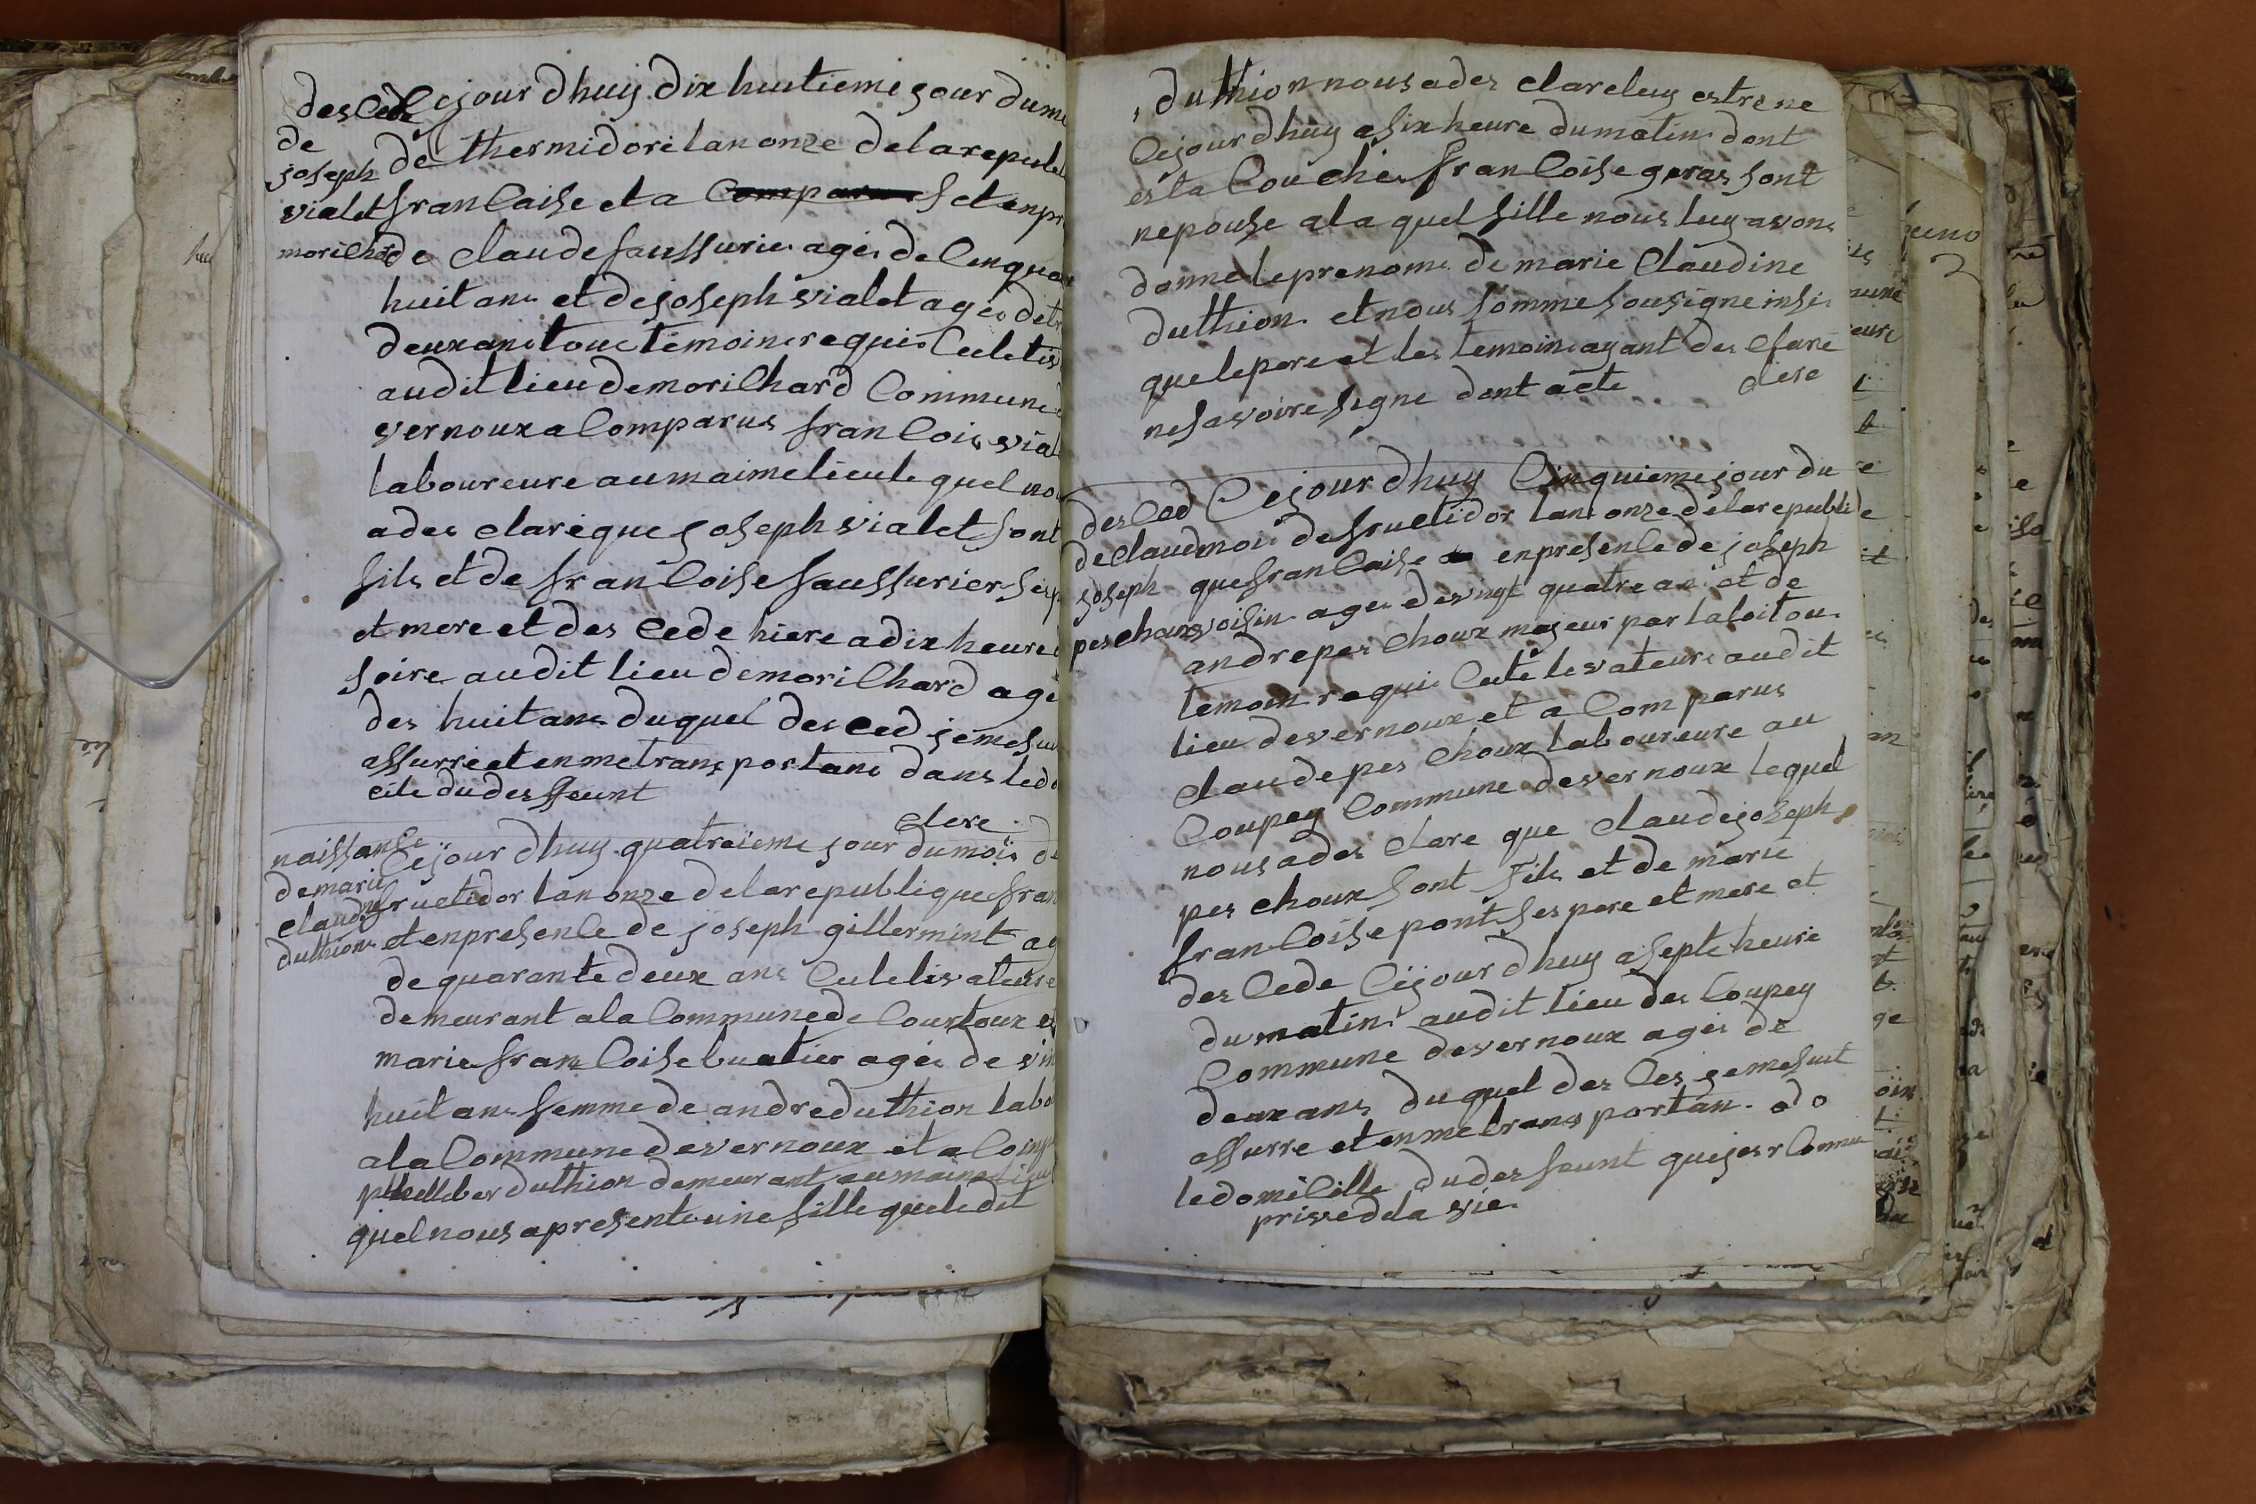 des Ced
de
joseph
vialet
morilhard
cejour dhuy dix huitieme jour du m
de thermidore lan onze de la republ
francaise et a Comparu et enpr
de claude saussurie age de Cinqua
huit ans et de joseph vialet age de tr
deux ans toue temoins requis Culetiv
audit lieu de morilhard Commune
vernoux a Comparus francois vial
laboureure au maime lieu le quel no
a des clare que joseph vialet sont
fils et de francoise saussurier ses p
et mere et des Cede hiere a dix heure
soire audit lieu de morilhard age
des huit ans duquel des Ced je me sui
assurre et en me transportans dans le do
cile du desffeunt
clere
naissance
de marie
claudine
duthion
Cejour dhuy quatreieme jour du mois de
fructidor lan onze de la republique fran
et enpresence de joseph gillermint ag
de quarante deux ans Culetivateure
demeurant a la Commune de Courtoux et
marie francoise buatier age de vin
huit ans femme de andre duthion labo
a la Commune de vernoux et a Comp
philleber duthion demeurant au maime lieu
quel nous a presente une fille que le dit
duthion nous a des clare luy estre ne
Cejour dhuy a six heure du matin dont
est a Couche francoise gras sont
nepouse a la quel fille nous luy avons
donne le prenome de marie Claudine
duthion et nous somme sousigne insi
que le pere et les temoins ayant des clare
ne savoire signe dont acte clere
des Ced
de claude
joseph
peschoux
Cejour dhuy Cinquieme jour du
mois de fructidor lan onze de la republi
que francaise enpresence de joseph
voisin age de vingt quatre ans et de
andre pes choux majeur par la loi tou
temoin requis Culetivateure audit
lieu de vernoux et a Comparus
claude pes choux laboureure au
Coupey Commune de vernoux lequel
nous a des clare que claude joseph
pes choux sont fils et de marie
francoise pont ses pere et mere et
des Cede Cejour dhuy a septe heure
du matin audit lieu des Coupey
Commune de vernoux age de
deux ans du quel des Ces je me suit
assurre et en me transportan o do
le domicille du des feunt que jes r Connu
prive de la vie